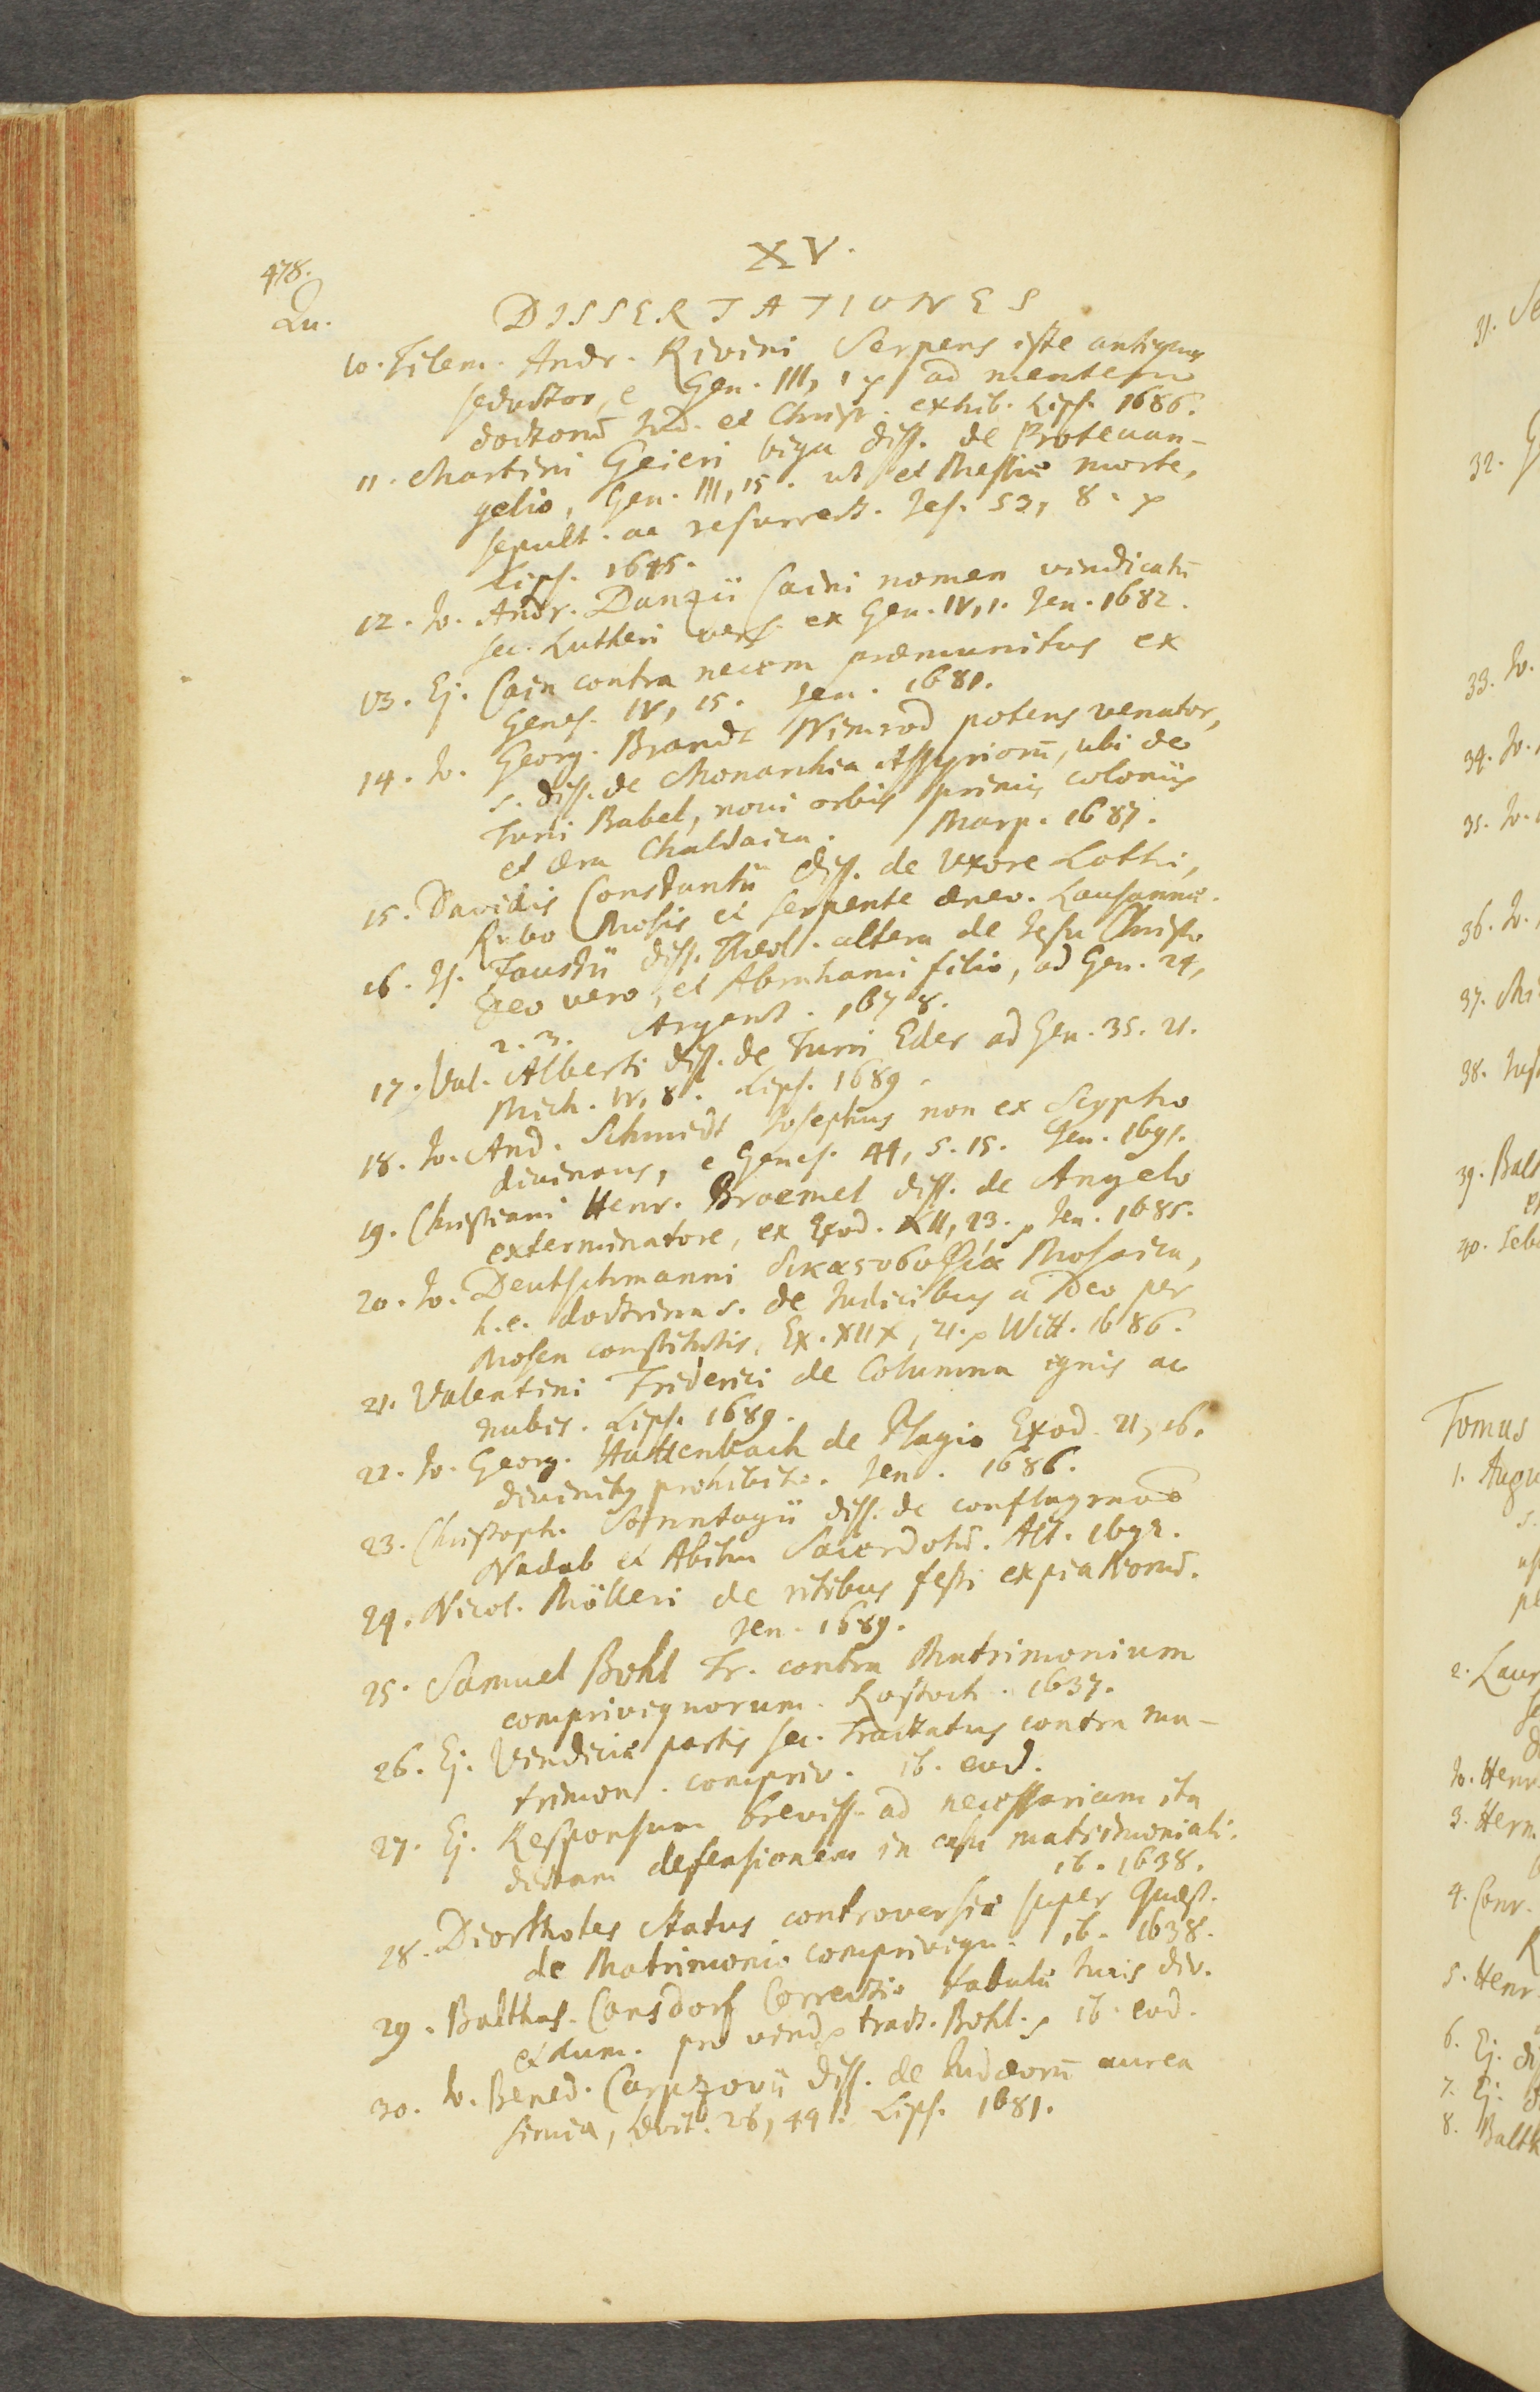 478.
XV.
Qu.
DISSERTATIONES
10. Tilem. Andr. Rivini Serpens iste antiquus
seductor, e Gen. III, 1 p ad mentem
doctorum̄ Jud. et Christ. exhib. Lips. 1686.
11. Martini Geieri biga diss. de Protevan-
gelio, Gen. III, 15. ut et Messiæ morte,
sepult. ac resurrect. Jes. 53, 8. p
Lips. 1645.
12. Jo. Andr. Danzii Caini nomen vindicatū
sec. Lutheri vers. ex Gen. IV, 1. Jen. 1682.
13. Ej. Cain contra necem præmunitus ex
Genes. IV, 15. Jen. 1681.
14. Jo. Georg. Brandt Nimrod potens venator,
s. diss. de Monarchia Assyriorū, ubi de
Turri Babel, novi orbis primis coloniis
et æra Chaldaica. Marp. 1687.
15. Davidis Constantii diss. de Uxore Lothi,
Rubo Mosis et serpente æneo. Lausannæ.
16. Is. Faustii diss. Theol. altera de Jesu Christo
Deo vero, et Abrahami filio, ad Gen. 24,
2. 3. Argent. 1678.
17. Val. Alberti diss. de Turri Eder ad Gen. 35. 21.
Mich. IV, 8. Lips. 1689.
18. Jo. And. Schmidt Josephus non ex Scypho
divinans, e Genes. 44, 5. 15. Jen. 1691.
19. Christiani Henr. Broemel diss. de Angelo
exterminatore, ex Exod. XII, 23. p Jen. 1685.
20. Jo. Deutschmanni Mosaica,
h. e. doctrina s. de Judicibus a Deo per
Mosen constitutis, Ex. XIIX, 21. p Witt. 1686.
21. Valentini Friderici de Columna ignis ac
nubis. Lips. 1689.
22. Jo. Georg. Hattenbach de Plagio Exod. 21, 16.
divinitus prohibito. Jen. 1686.
23. Christoph. Sonntagii diss. de conflagratōe
Nadab et Abihu Sacerdotū. Alt. 1692.
24. Nicol. Mölleri de ritibus festi expiationū.
Jen. 1689.
25. Samuel Bohl Tr. contra Matrimonium
comprivignorum. Rostoch. 1637.
26. Ej. Vindiciæ partis sec. Tractatus contra ma-
trimon. compriv. ib. eod.
27. Ej. Responsum breviss. ad necessariam ita
dictam defensionem in casu matrimoniali.
ib. 1638.
28. Diorthotes Status controversiæ super Quæst.
de Matrimonio comprivign. ib. 1638.
29. Balthas. Consdorf Correctio tabulæ Juris div.
et hum. pro vind. p tract. Bohl. p ib. eod.
30. Jo. Bened. Carpzovii diss. de Judæorū aurea
simia, Levit. 26, 44. Lips. 1681.
31. Se
32. G
33. Jo.
34. Jo.
35. Jo.
36. Jo.
37. Mi
38. Just
39. Balt
40. Seb
Tomus
1. Augu
2. Laur
Jo. Henr
3. Herm
4. Conr.
5. Henr.
6. Ej. di
7. Ej.
8. Balth